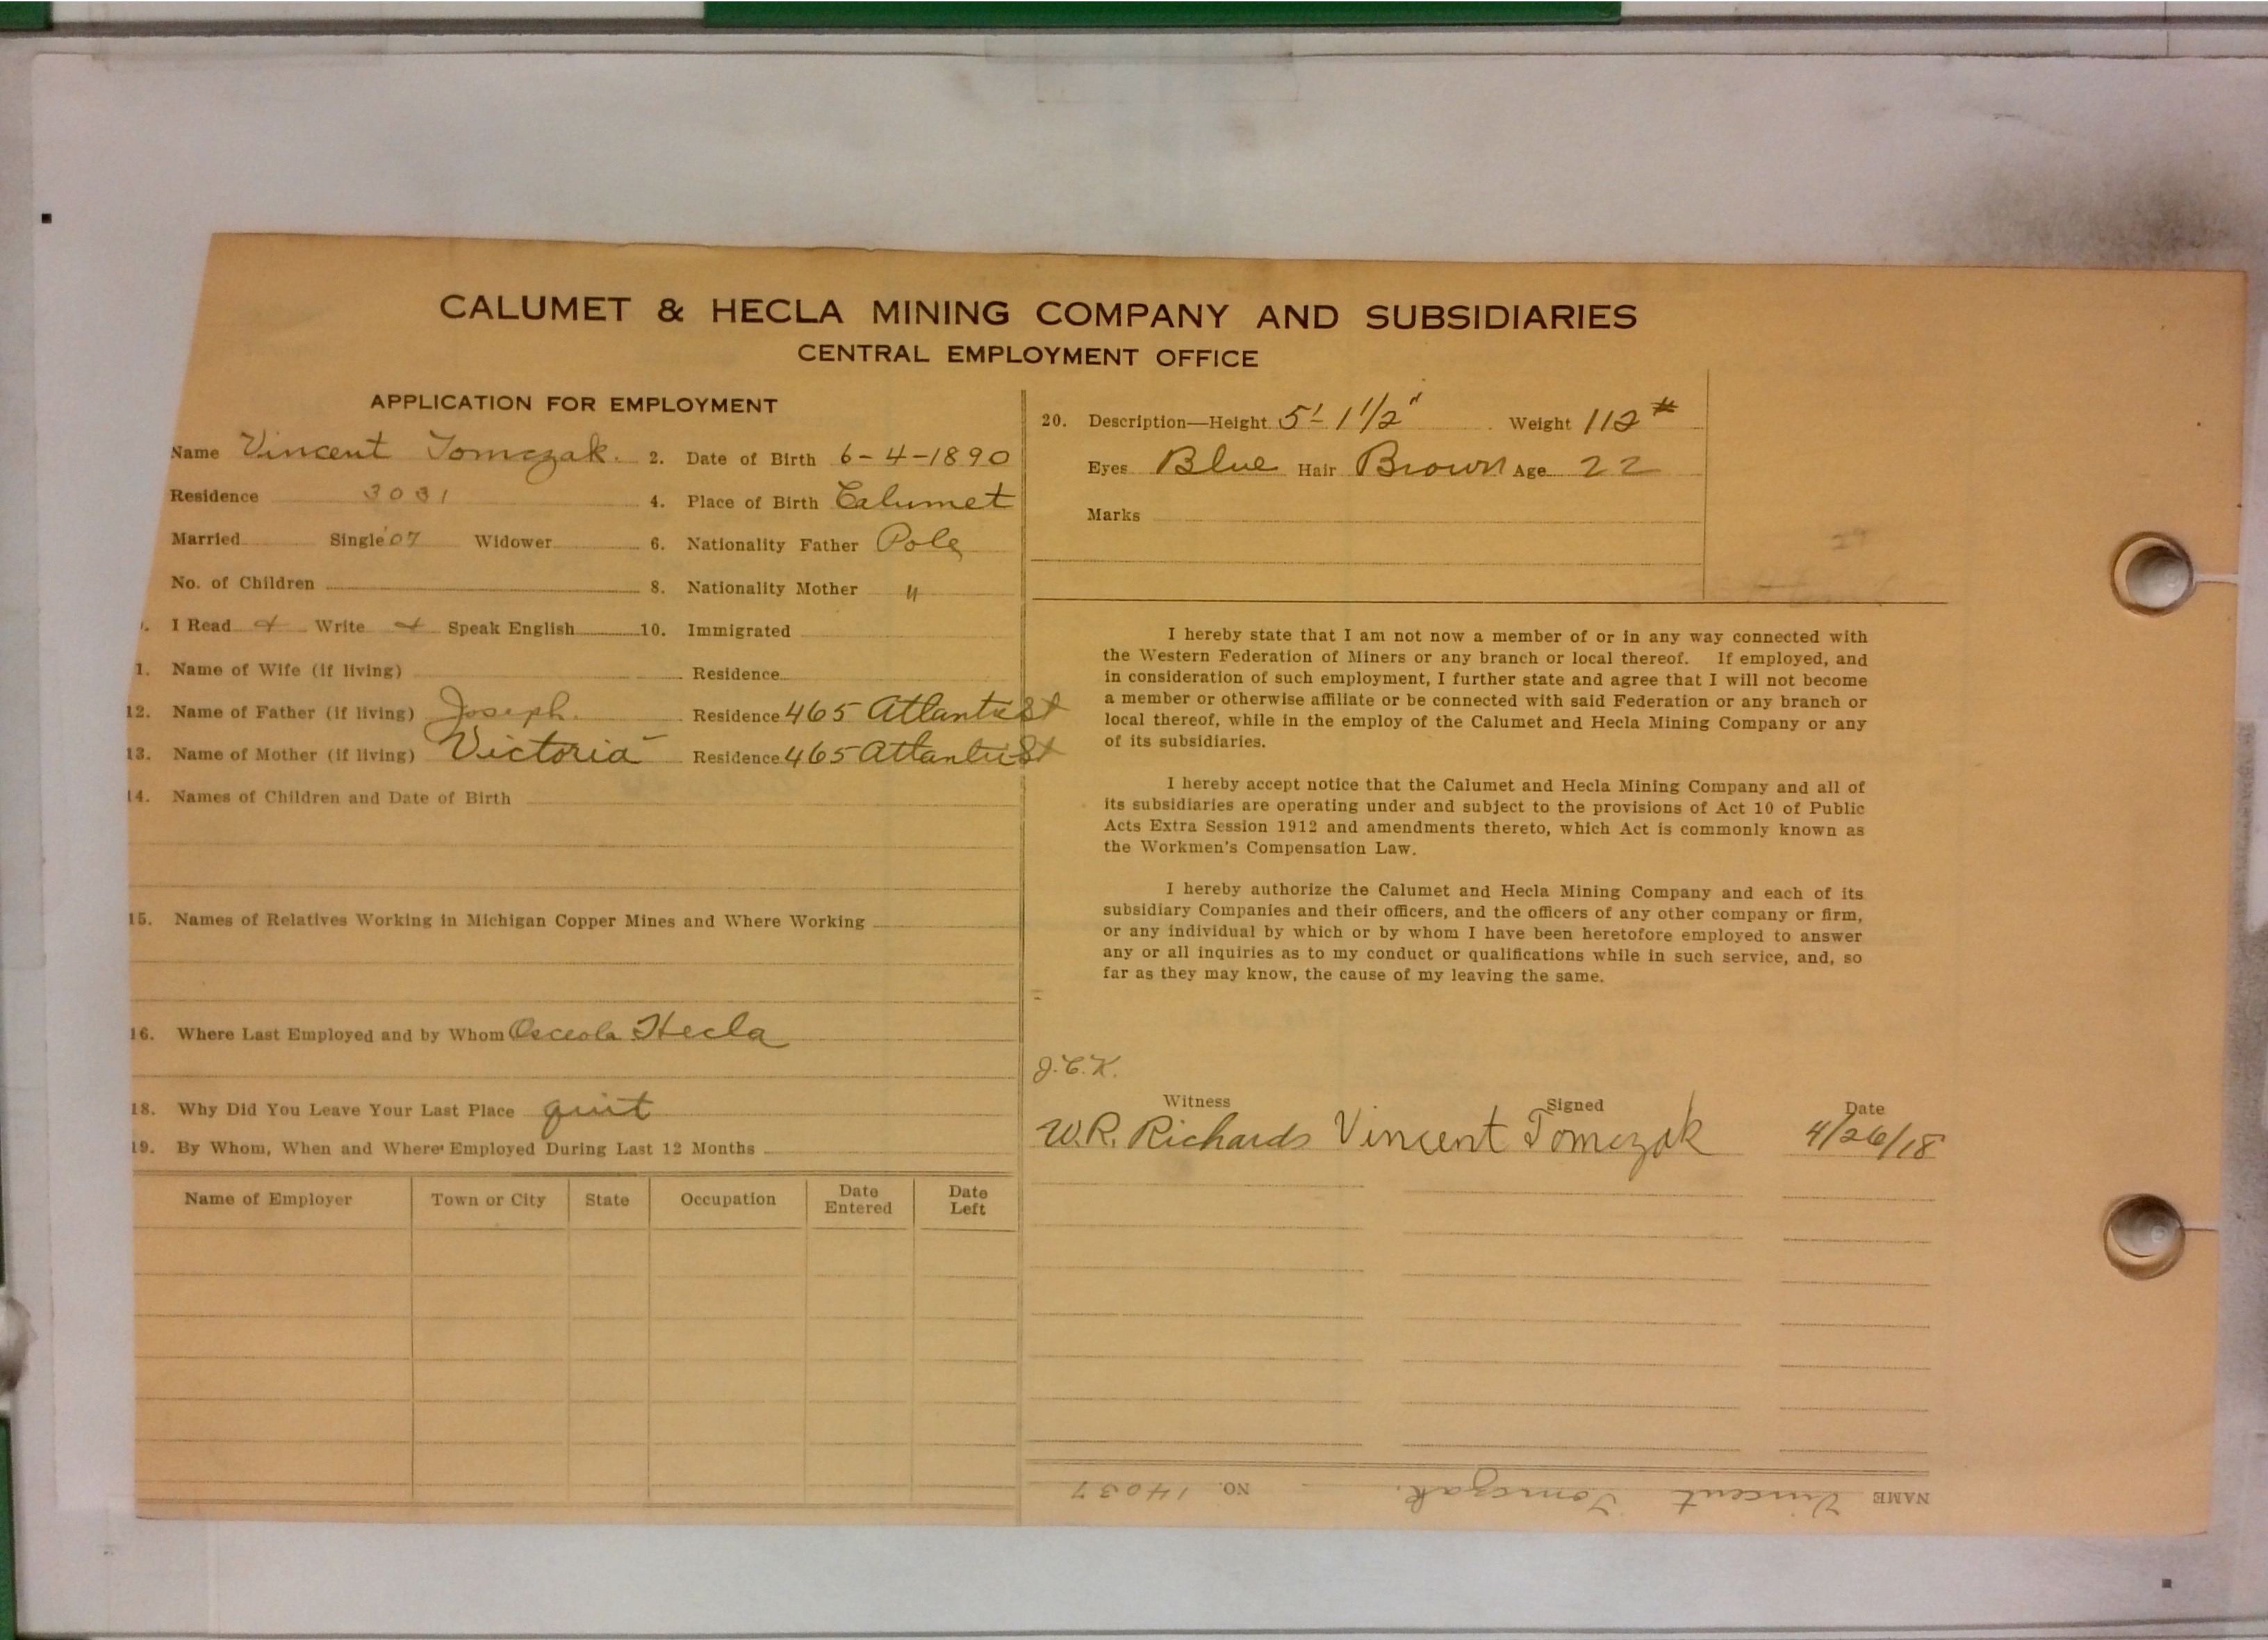 CALUMET & HECLA MINING COMPANY AND SUBSIDIARIES
CENTRAL EMPLOYMENT OFFICE
APPLICATION FOR EMPLOYMENT
Name Vincent Tomczak. 2. Date of Birth 6-4-1890
Residence 4. Place of Birth Calumet
Married Single Widower 6. Nationality Father Pole
No. of Children 8. Nationality Mother "
I Read Write Speak English 10. Immigrated
1. Name of Wife (if living) Residence
12. Name of Father (if living) Joseph. Residence 465 Atlantic St
13. Name of Mother (if living) Victoria Residence 465 Atlantic St
14. Names of Children and Date of Birth
15. Names of Relatives Working in Michigan Copper Mines and Where Working
16. Where Last Employed and by Whom Osceola Hecla
18. Why Did You Leave Your Last Place quit
19. By Whom, When and Where Employed During Last 12 Months
Name of Employer Town or City State Occupation Date Entered Date Left
20. Description—Height 5' 1 1/2" Weight 112 #
Eyes Blue Hair Brown Age 22
Marks
I hereby state that I am not now a member of or in any way connected with
the Western Federation of Miners or any branch or local thereof. If employed, and
in consideration of such employment, I further state and agree that I will not become
a member or otherwise affiliate or be connected with said Federation or any branch or
local thereof, while in the employ of the Calumet and Hecla Mining Company or any
of its subsidiaries.
I hereby accept notice that the Calumet and Hecla Mining Company and all of
its subsidiaries are operating under and subject to the provisions of Act 10 of Public
Acts Extra Session 1912 and amendments thereto, which Act is commonly known as
the Workmen's Compensation Law.
I hereby authorize the Calumet and Hecla Mining Company and each of its
subsidiary Companies and their officers, and the officers of any other company or firm,
or any individual by which or by whom I have been heretofore employed to answer
any or all inquiries as to my conduct or qualifications while in such service, and, so
far as they may know, the cause of my leaving the same.
J.C.K.
Witness Signed Date
W.R. Richards Vincent Tomczak 4/26/18
NAME Vincent Tomczak. NO. 14037